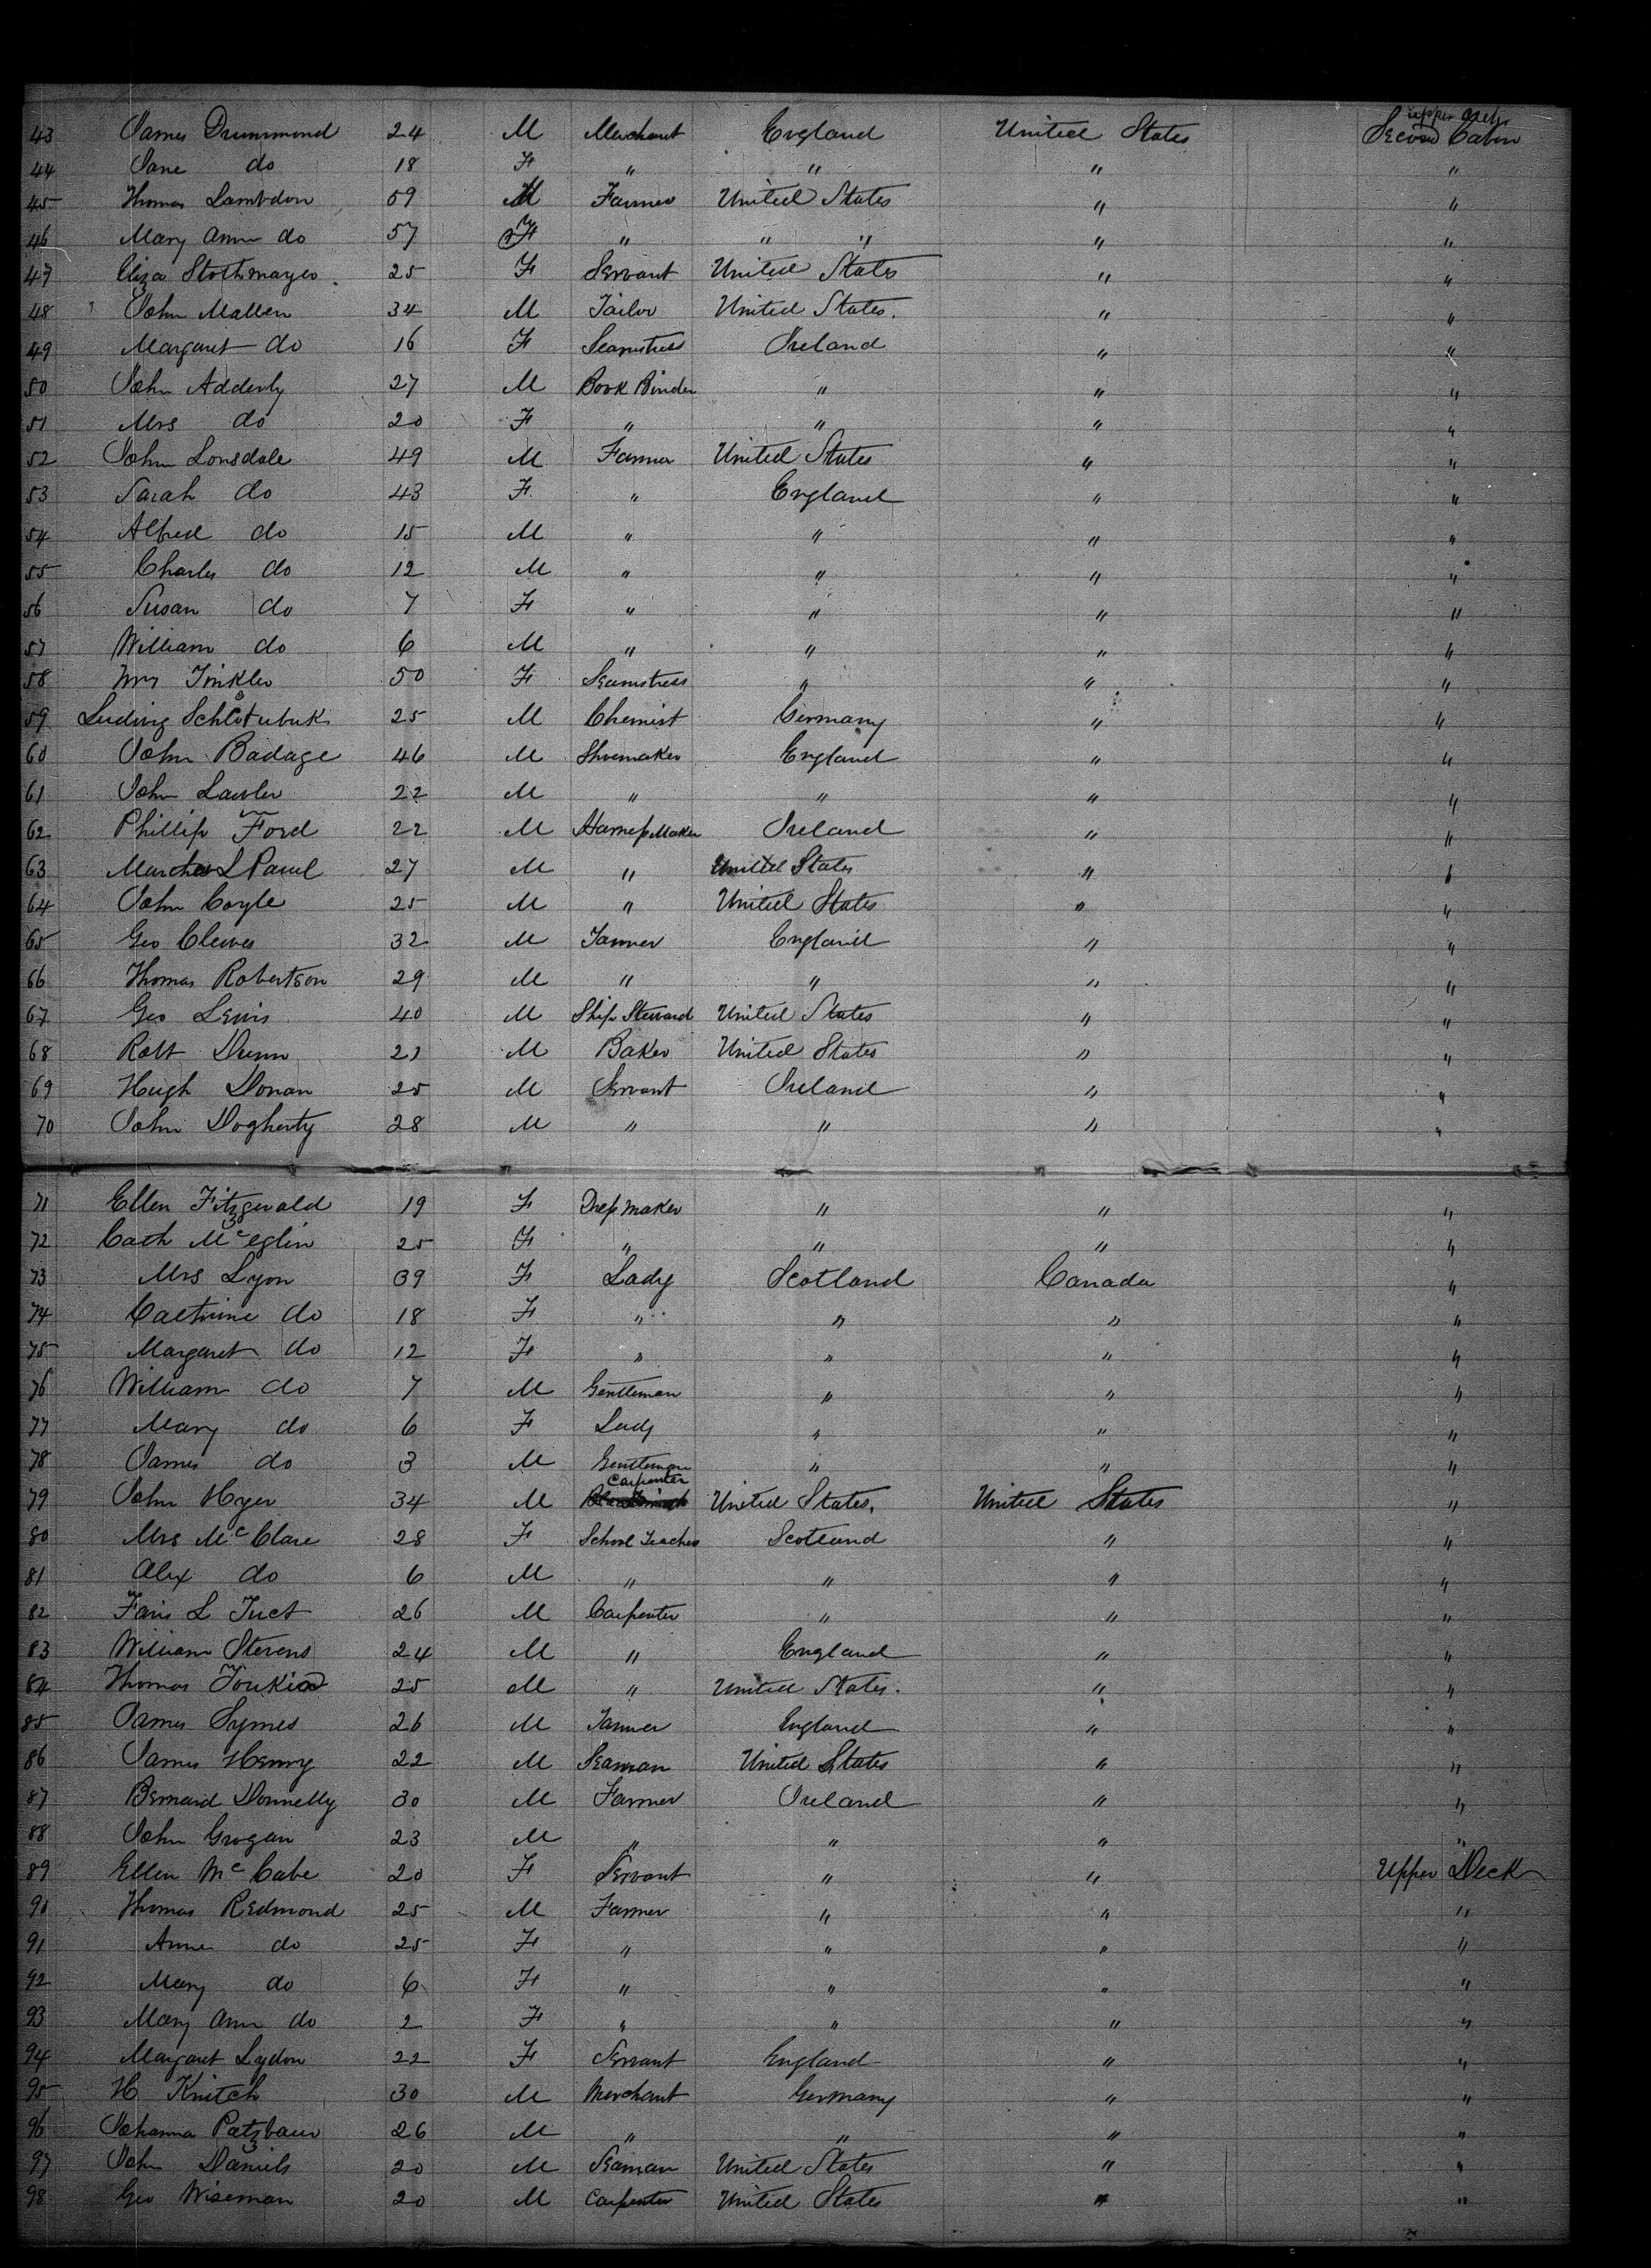 43 James Drummond 24 M Merchant England United States upper deck Second Cabin
44 Jane do 18 F " " " "
45 Thomas Lambdon 59 M Farmer United States " "
46 Mary Ann do 57 F " " " " "
47 Eliza 25 F Servant United States " "
48 John Mallen 34 M Tailor United States. " "
49 Margaret do 16 F Seamstress Ireland " "
50 John Adderly 27 M Book Binder " " "
51 Mrs do 20 F " " " "
52 John Lonsdale 49 M Farmer United States " "
53 Sarah do 43 F " England " "
54 Alfred do 15 M " " " "
55 Charles do 12 M " " " "
56 Susan do 7 F " " " "
57 William do 6 M " " " "
58 Mrs Tinkler 50 F Seamstress " " "
59 25 M Chemist Germany " "
60 John Badage 46 M Shoemaker England " "
61 John Lawler 22 M " " " "
62 Phillip Ford 22 M Harness Maker Ireland " "
63 27 M " United States " "
64 John Coyle 25 M " United States " "
65 Geo Clewes 32 M Tanner England " "
66 Thomas Robertson 29 M " " " "
67 Geo Lewis 40 M Ship Steward United States " "
68 Robt Dunn M Baker United States " "
69 Hugh Donan 25 M Servant Ireland " "
70 John Dogherty 28 M " " " "
71 Ellen Fitzgerald 19 F Dress Maker " " "
72 Cath McEglin 25 F " " " "
73 Mrs Lyon 39 F Lady Scotland Canada "
74 Cathrine do 18 F " " " "
75 Margaret do 12 F " " " "
76 William do 7 M Gentleman " " "
77 Mary do 6 F Lady " " "
78 James do 3 M Gentleman " " "
79 John Hyer 34 M Carpenter United States. United States "
80 Mrs McClare 28 F School Teacher Scotland " "
81 Alex do 6 M " " " "
82 26 M Carpenter " " "
83 William Stevens 24 M " England " "
84 Thomas 25 M " United States. " "
85 James Symes 26 M Tanner England " "
86 James Henry 22 M Seaman United States " "
87 Bernard Donnelly 30 M Farmer Ireland " "
88 John Grogan 23 M " " " "
89 Ellen McCabe 20 F Servant " " Upper Deck
90 Thomas Redmond 25 M Farmer " " "
91 Anne do 25 F " " " "
92 Mary do 6 F " " " "
93 Mary Ann do 2 F " " " "
94 Margaret Lydon 22 F Servant England " "
95 H Knitch 30 M Merchant Germany " "
96 Johanna Patzbauer 26 M " " " "
97 John Daniels 20 M Seaman United States " "
98 Geo Wiseman 20 M Carpenter United States " "